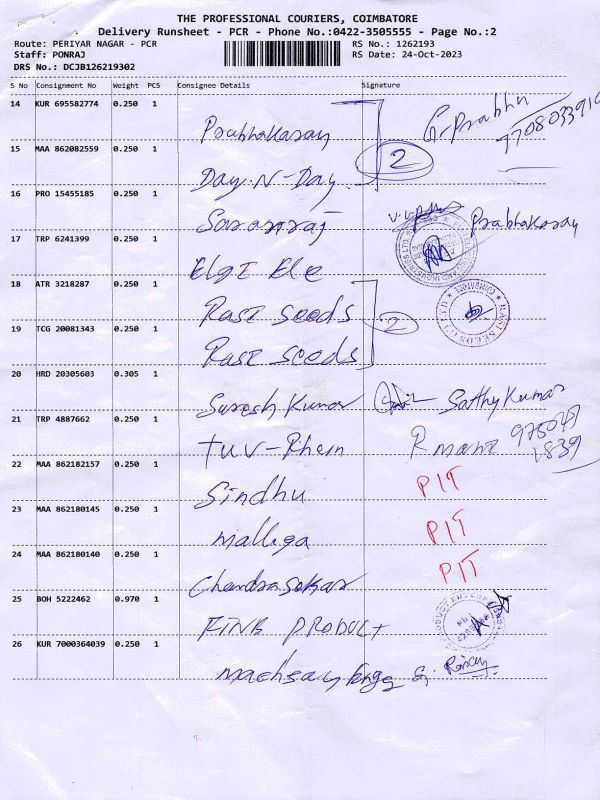 THE PROFESSIONAL COURIERS, COIMBATORE
Delivery Runsheet - PCR - Phone No.:0422-3505555 - Page No.:2
Route: PERIYAR NAGAR - PCR RS No.: 1262193
Staff: PONRAJ RS Date: 24-Oct-2023
DRS No.: DCJB126219302
S No Consignment No Weight PCS Consignee Details Signature
14 KUR 695582774 0.250 1
Prabhakaran G. Prabhu
7708033910
15 MAA 862082559 0.250 1
2
Day-N-Day
16 PRO 15455185 0.250 1
Saravanraj Prabhakaran
17 TRP 6241399 0.250 1
ElgI Ele
18 ATR 3218287 0.250 1
RasI seeds
2
19 TCG 20081343 0.250 1
RasI seeds
20 HRD 20305603 0.305 1
Suresh Kumar Sathy Kumar
21 TRP 4887662 0.250 1
TUV-Rhein R mani
22 MAA 862182157 0.250 1
Sindhu PIT
23 MAA 862180145 0.250 1
malliga PIT
24 MAA 862180140 0.250 1
Chandrasekar PIT
25 BOH 5222462 0.970 1
FINE PRODUCT
26 KUR 7000364039 0.250 1
Engg